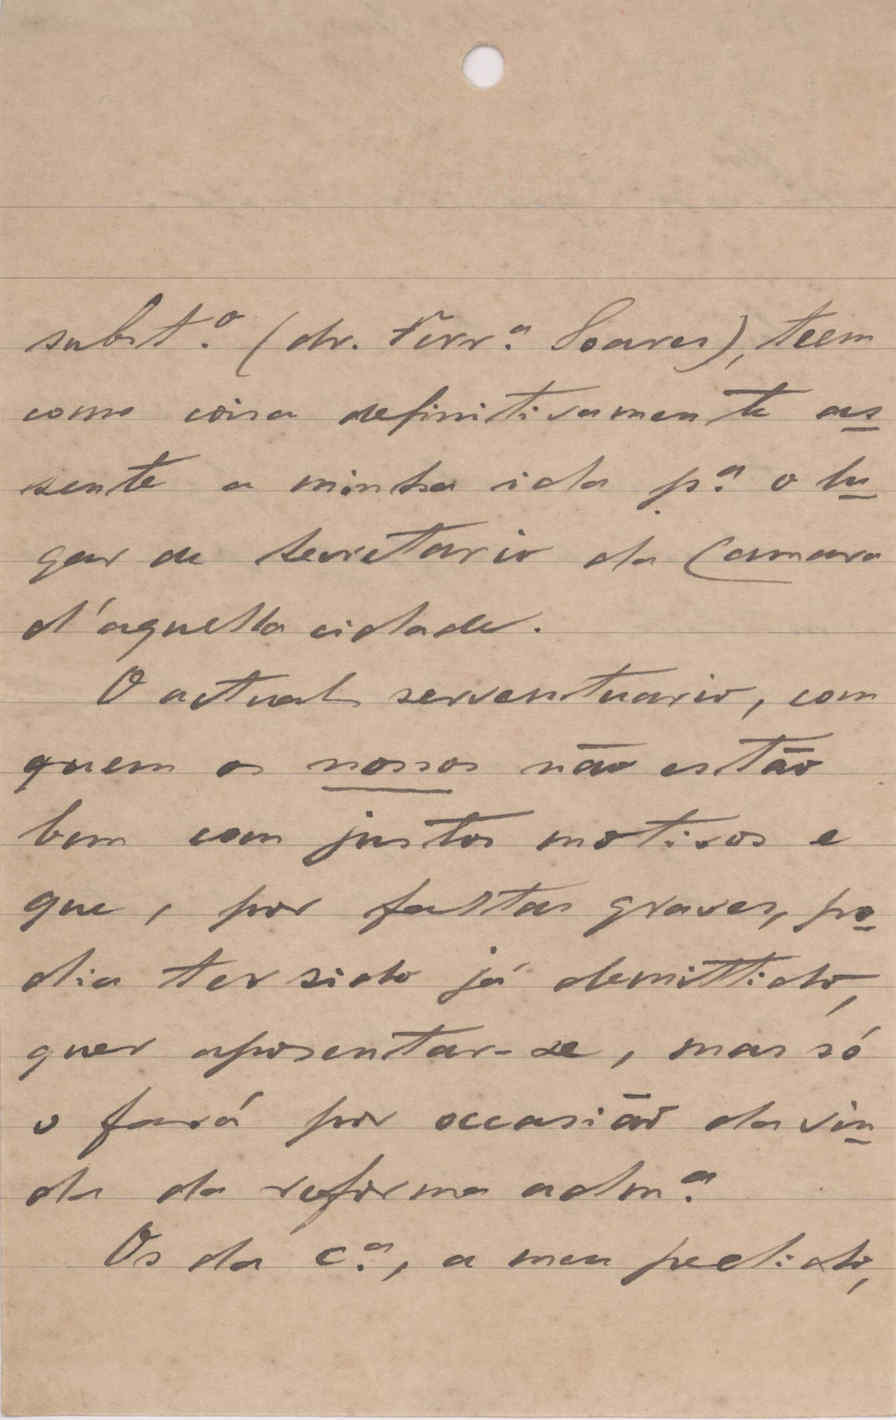 subst.º (dr. Ferr.ª Soares), teem
como coisa definitivamente as
sente a minha ida p.ª o lu
gar de secretario da Camara
d'aquella cidade.
O actual serventuario, com
quem os nossos não estão
bem com justos motivos e
que, por faltas graves, po
dia ter sido já demittido,
quer aposentar-se, mas só
o fará por occasião da vin
da da reforma adm.ª
Os da c.ª, a meu pedido,